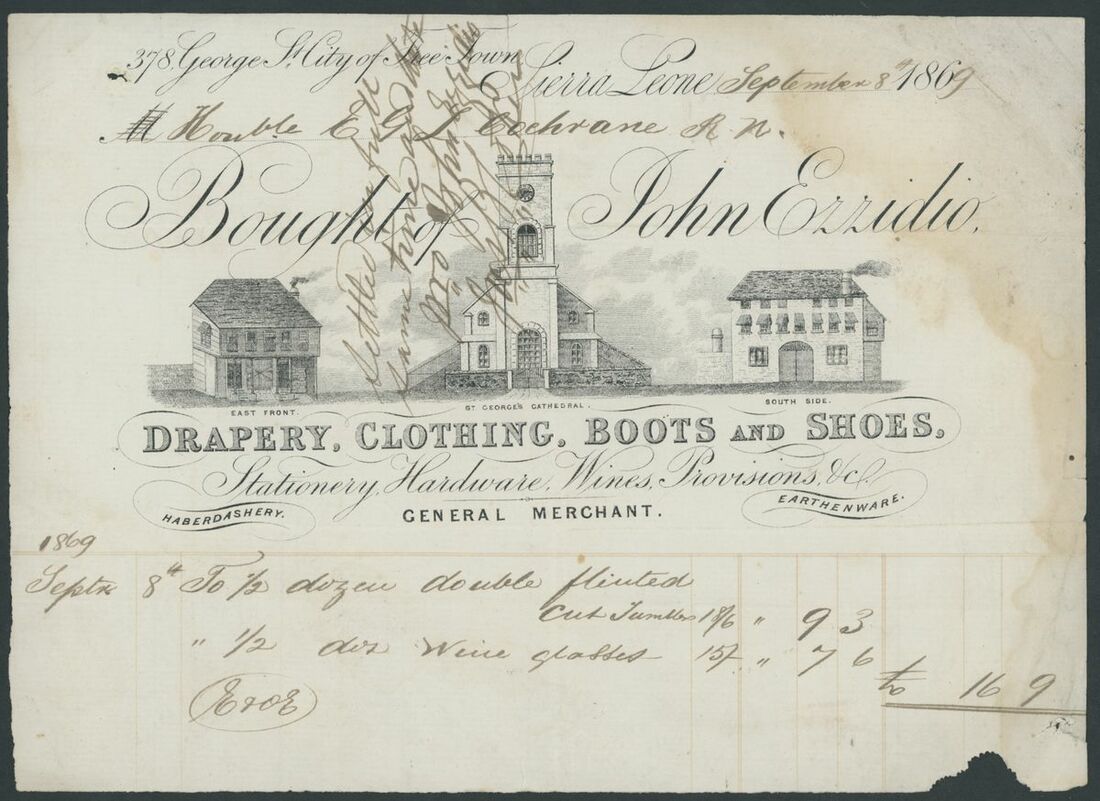 378, George St. City of Free Town
Sierra Leone September 8th 1869
Honble E G L Cochrane R. N.
Bought of John Ezzidio.
EAST FRONT.
ST GEORGE'S CATHEDRAL.
SOUTH SIDE.
DRAPERY, CLOTHING, BOOTS AND SHOES,
Stationery, Hardware, Wines, Provisions, &c.
HABERDASHERY.
GENERAL MERCHANT.
EARTHENWARE.
1869
Septr 8th To 1/2 dozen double flinted
Cut Tumblers 18/6 " 9 3
" 1/2 doz Wine glasses 15/ " 7 6
16 9
E&OE
Settled in full
same time and date
pro John Ezzidio